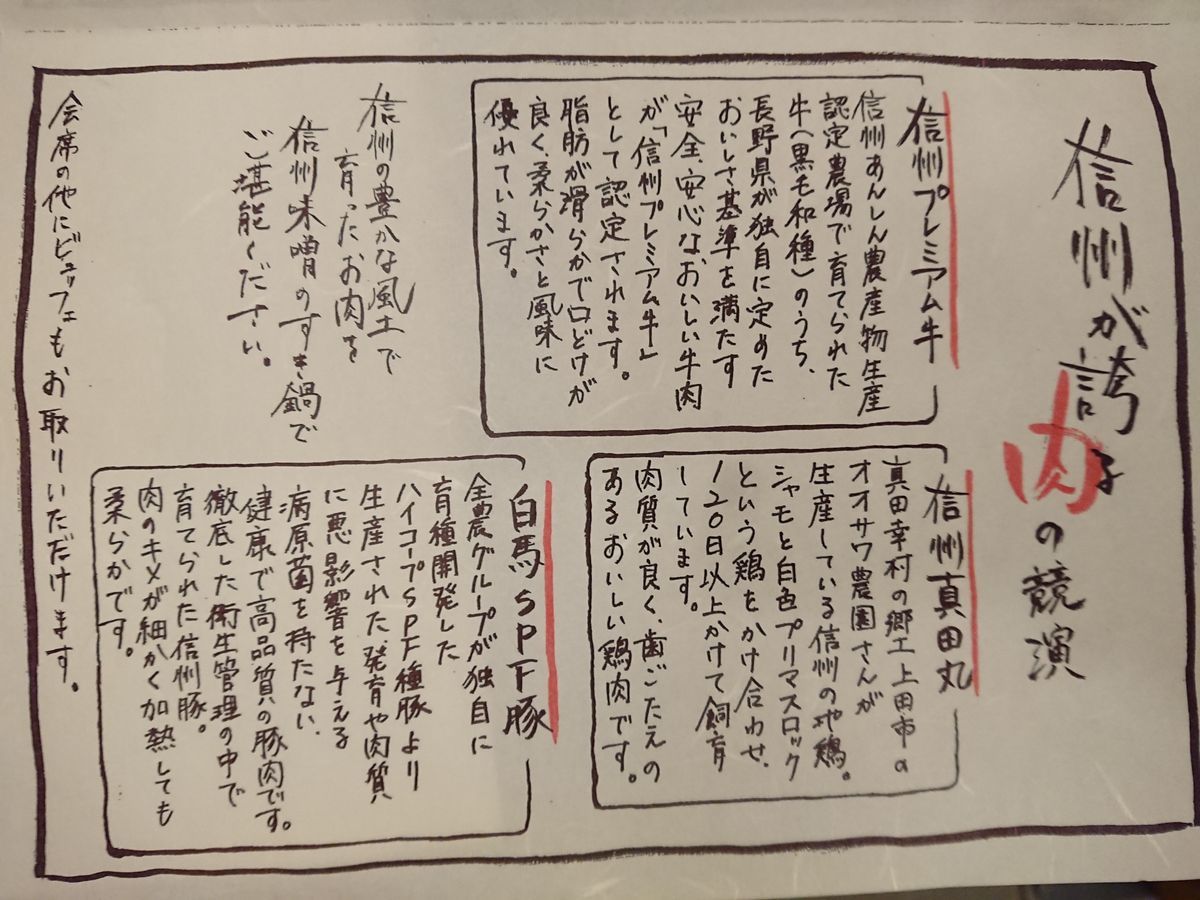 信州が誇る
肉の競演
信州プレミアム牛
信州あんしん農産物生産
認定農場で育てられた
牛(黒毛和種)のうち、
長野県が独自に定めた
おいしさ基準を満たす
安全、安心な、おいしい牛肉
が「信州プレミアム牛」
として認定されます。
脂肪が滑らかで口どけが
良く、柔らかさと風味に
優れています。
信州真田丸
真田幸村の郷土上田市の
オオサワ農園さんが
生産している信州の地鶏。
シャモと白色プリマスロック
という鶏をかけ合わせ、
120日以上かけて飼育
しています。
肉質が良く、歯ごたえの
あるおいしい鶏肉です。
白馬SPF豚
全農グループが独自に
育種開発した
ハイコープSPF種豚より
生産された発育や肉質
に悪影響を与える
病原菌を持たない、
健康で高品質の豚肉です。
徹底した衛生管理の中で
育てられた信州豚。
肉のキメが細かく加熱しても
柔らかです。
信州の豊かな風土で
育ったお肉を
信州味噌のすき鍋で
ご堪能ください。
会席の他にビュッフェもお取りいただけます。